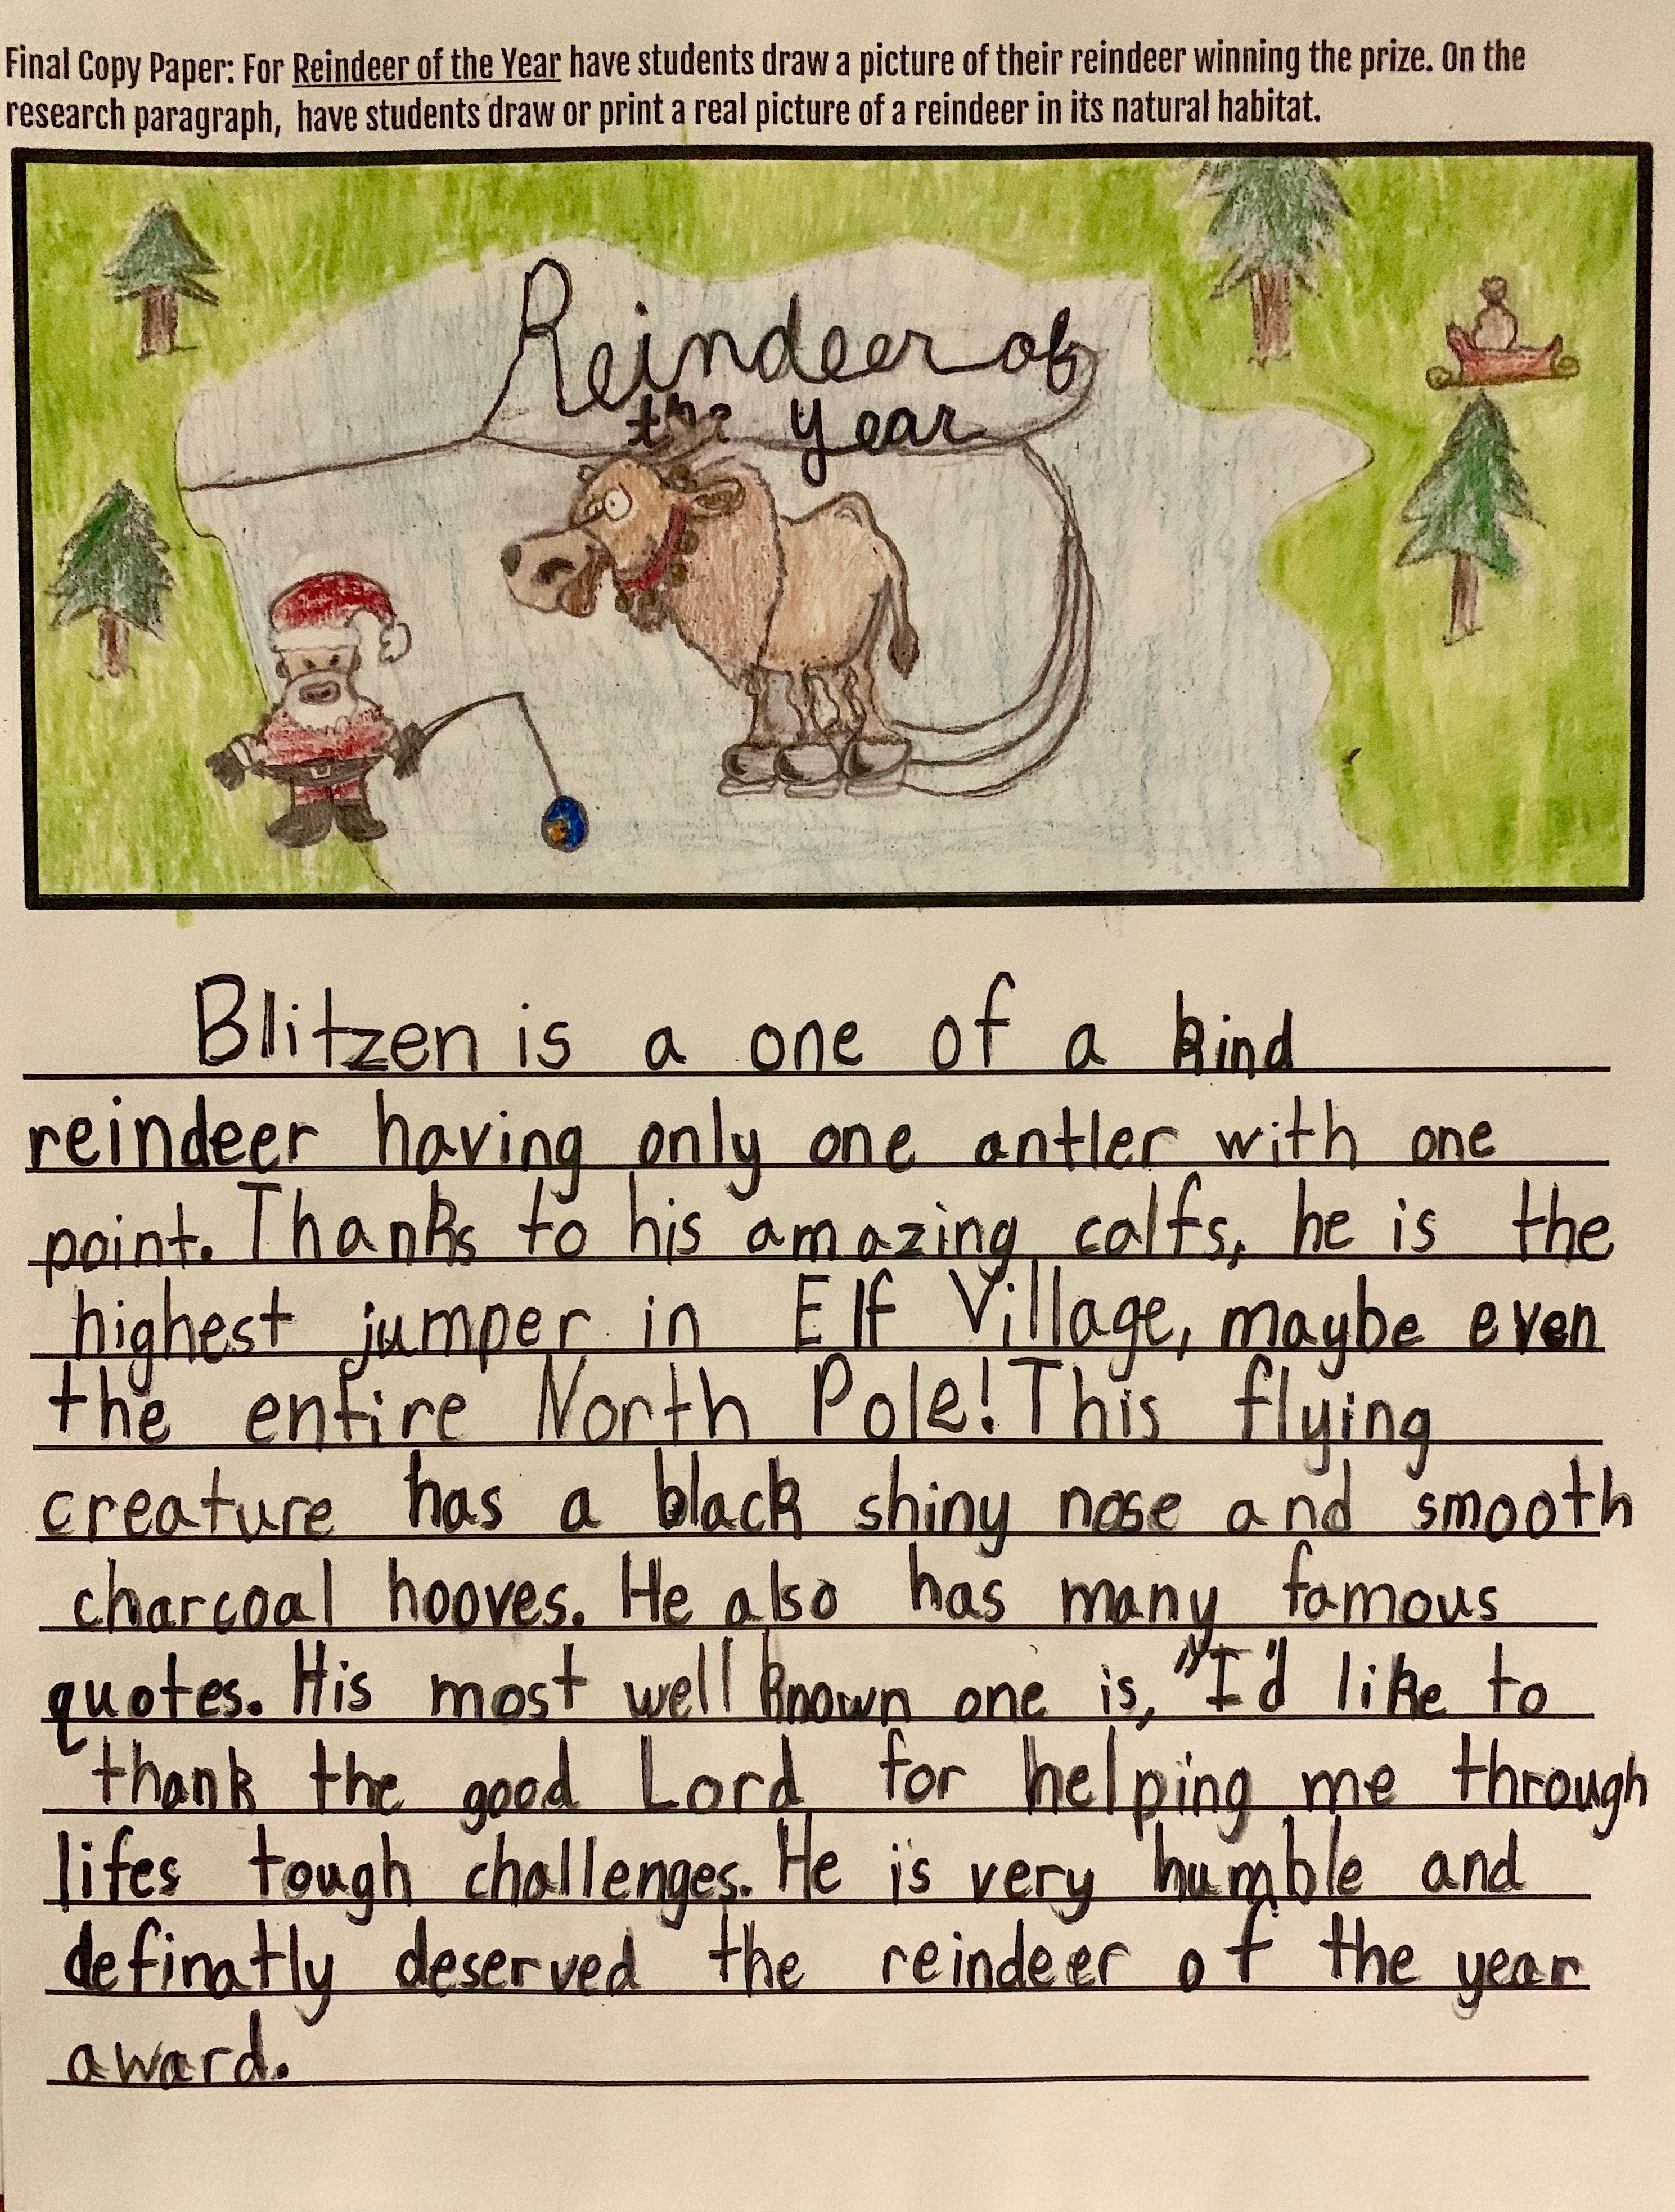 Final Copy Paper: For Reindeer of the Year have students draw a picture of their reindeer winning the prize. On the
research paragraph, have students draw or print a real picture of a reindeer in its natural habitat.
Reindeer of
the year
Blitzen is a one of a kind
reindeer having only one antler with one
point. Thanks to his amazing calfs, he is the
highest jumper in Elf Village, maybe even
the entire North Pole! This flying
creature has a black shiny nose and smooth
charcoal hooves. He also has many famous
quotes. His most well known one is, "I'd like to
thank the good Lord for helping me through
lifes tough challenges. He is very humble and
definatly deserved the reindeer of the year
award.